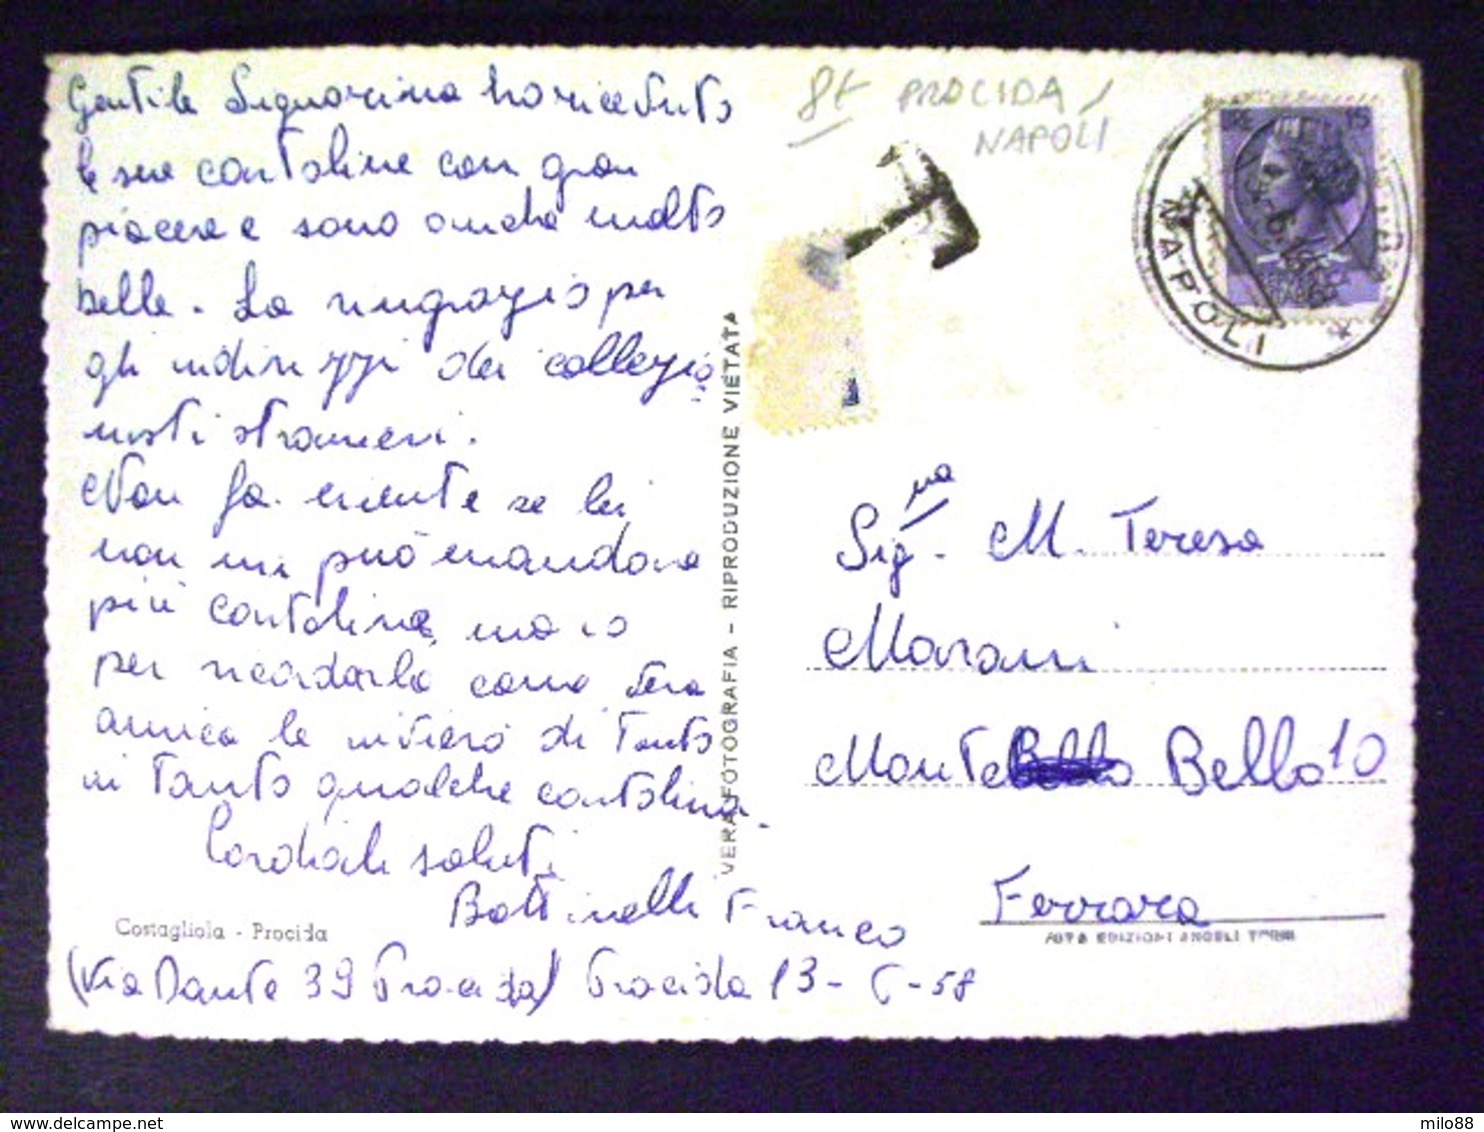 Gentile Signorina ho ricevuto
le sue cartoline con gran
piacere e sono anche molto
belle. La ringrazio per
gli indirizzi dei collezio
nisti stranieri.
Non fa niente se lei
non mi può mandare
più cartoline, ma io
per ricordarla come vera
amica le invierò di tanto
in tanto qualche cartolina.
Cordiali saluti
Bottinelli Franco
Costagliola - Procida
(Via Dante 39 Procida) Procida 13-6-58
VERA FOTOGRAFIA - RIPRODUZIONE VIETATA
8t PROCIDA /
NAPOLI
T
LIRE 15
NAPOLI
Sig.na M. Teresa
Marani
Monte Bello 10
Ferrara
EDIZIONI ANGELI TERNI
milo88